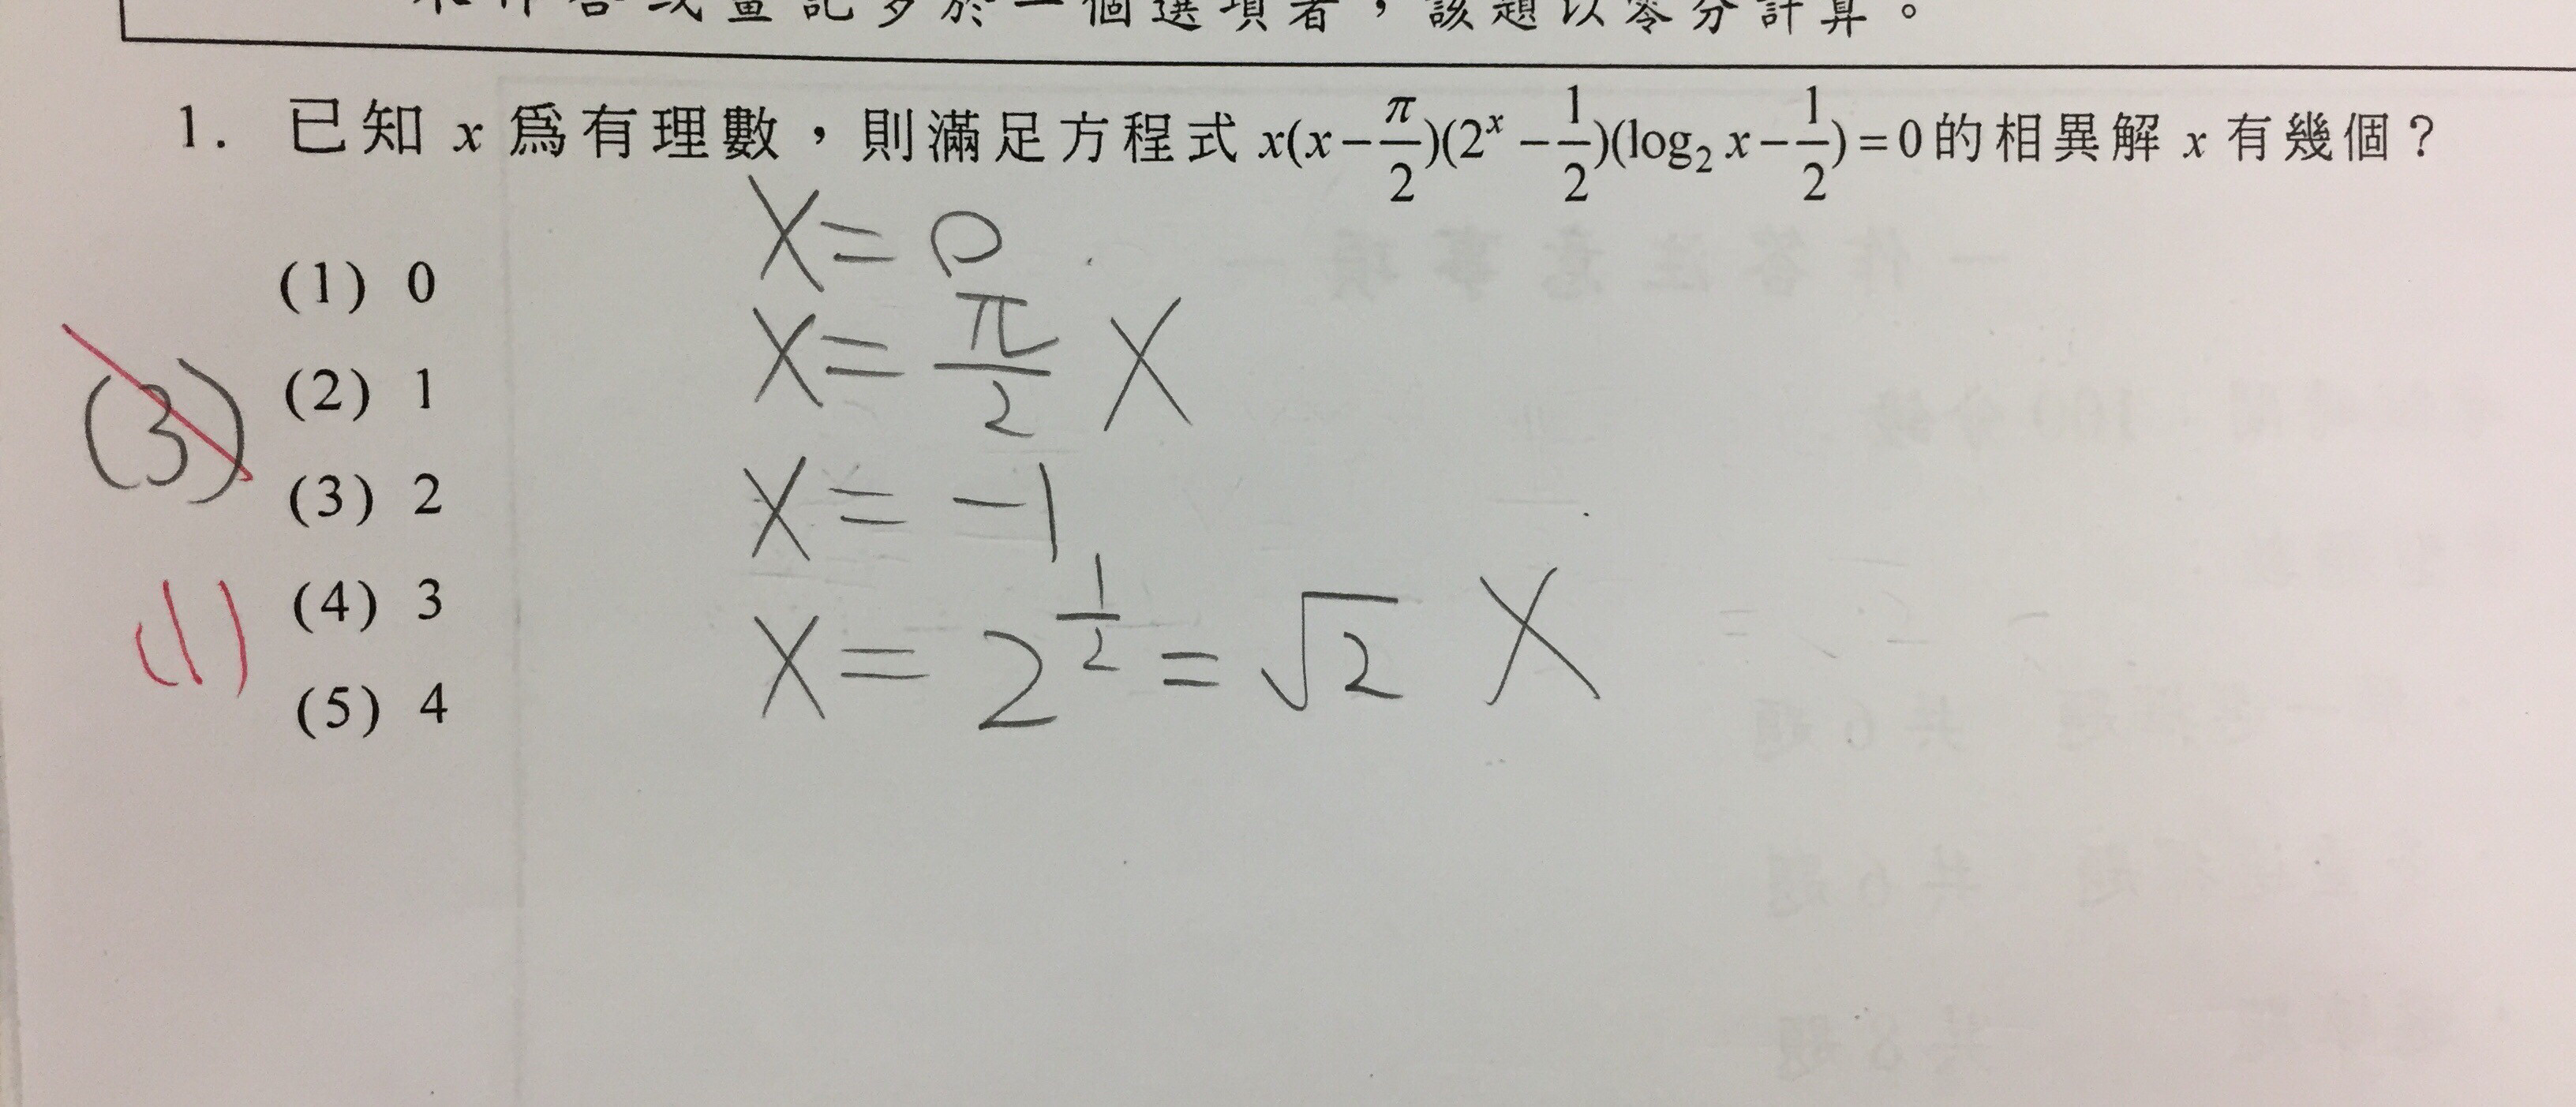 作答或畫記多於一個選項者，該題以零分計算。
1. 已知 x 爲有理數，則滿足方程式 x(x−π/2)(2^x−1/2)(log₂x−1/2)=0的相異解 x 有幾個？
(1) 0
(2) 1
(3) 2
(4) 3
(5) 4
(3)
(1)
X=0
X=π/2 X
X=-1
X=2^(1/2)=√2 X